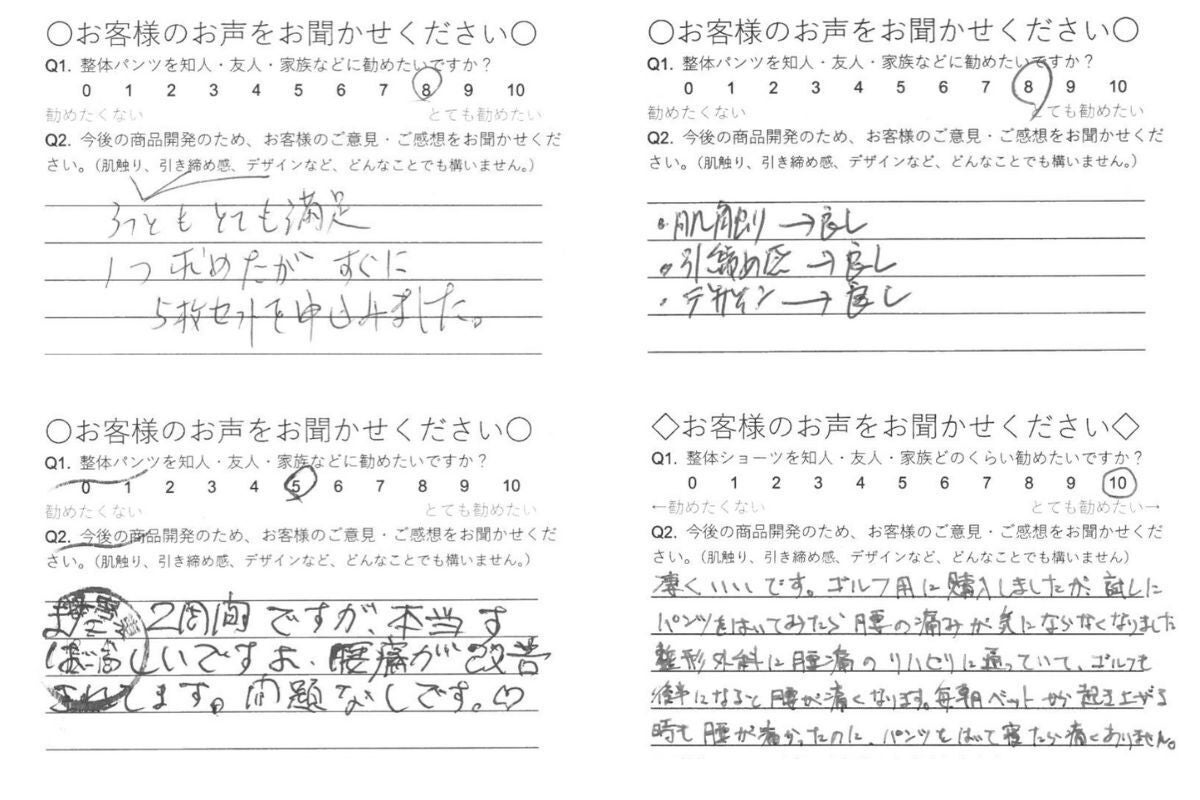 〇お客様のお声をお聞かせください〇
Q1. 整体パンツを知人・友人・家族などに勧めたいですか？
0 1 2 3 4 5 6 7 8 9 10
勧めたくない とても勧めたい
Q2. 今後の商品開発のため、お客様のご意見・ご感想をお聞かせくだ
さい。（肌触り、引き締め感、デザインなど、どんなことでも構いません。）
3つとも とても満足
1つ求めたが すぐに
5枚セットを申込みました。
〇お客様のお声をお聞かせください〇
Q1. 整体パンツを知人・友人・家族などに勧めたいですか？
0 1 2 3 4 5 6 7 8 9 10
勧めたくない とても勧めたい
Q2. 今後の商品開発のため、お客様のご意見・ご感想をお聞かせくだ
さい。（肌触り、引き締め感、デザインなど、どんなことでも構いません。）
・肌触り→良し
・引締め →良し
・デザイン→良し
〇お客様のお声をお聞かせください〇
Q1. 整体パンツを知人・友人・家族などに勧めたいですか？
0 1 2 3 4 5 6 7 8 9 10
勧めたくない とても勧めたい
Q2. 今後の商品開発のため、お客様のご意見・ご感想をお聞かせくだ
さい。（肌触り、引き締め感、デザインなど、どんなことでも構いません。）
まだ 2週間ですが、本当す
ばらしいですよ、腰痛が改善
されてします。問題なしです。♡
◇お客様のお声をお聞かせください◇
Q1. 整体ショーツを知人・友人・家族どのくらい勧めたいですか？
0 1 2 3 4 5 6 7 8 9 10
←勧めたくない とても勧めたい→
Q2. 今後の商品開発のため、お客様のご意見・ご感想をお聞かせくだ
さい。（肌触り、引き締め感、デザインなど、どんなことでも構いません）
凄くいいです。ゴルフ用に購入しましたが、試しに
パンツをはいてみたら腰の痛みが気にならなくなりました
整形外科に腰痛のリハビリに通っていて、ゴルフも
後半になると腰が痛くなります。毎朝ベットから起き上がる
時も腰が痛かったのに、パンツをはいて寝たら痛くありません。